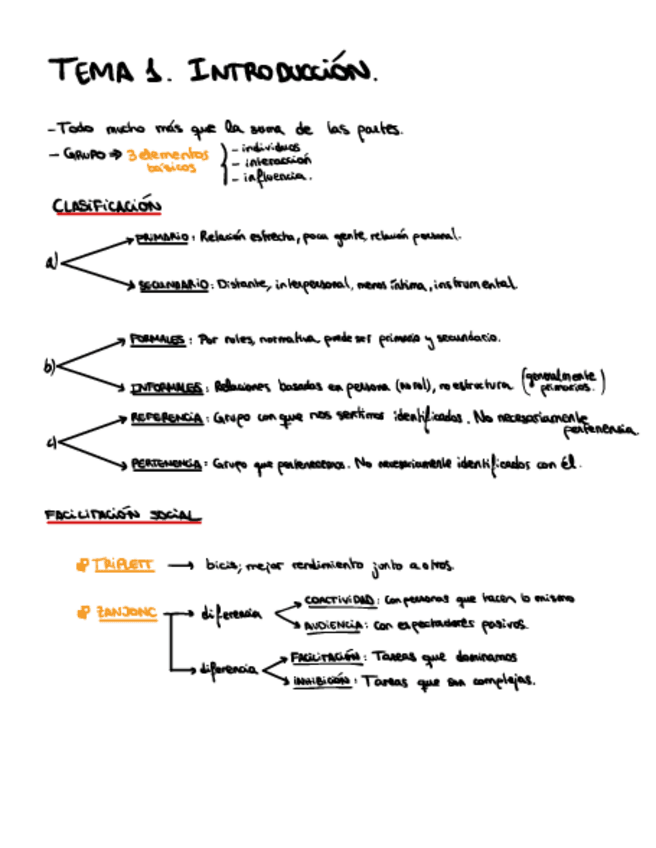 TEMA 1. INTRODUCCIÓN.
- Todo mucho más que la suma de las partes.
- GRUPO => 3 elementos básicos
- individuos
- interacción
- influencia.
CLASIFICACIÓN
a)
PRIMARIO: Relación estrecha, poca gente, relación personal.
SECUNDARIO: Distante, interpersonal, menos íntima, instrumental
b)
FORMALES: Por roles, normativa, puede ser primario y secundario.
INFORMALES: Relaciones basadas en persona (no rol), no estructura (generalmente primarios.)
c)
REFERENCIA: Grupo con que nos sentimos identificados. No necesariamente pertenencia.
PERTENENCIA: Grupo que pertenecemos. No necesariamente identificados con él.
FACILITACIÓN SOCIAL
TRIPLETT → bicis; mejor rendimiento junto a otros.
ZANJONC → diferencia
COACTIVIDAD: Con personas que hacen lo mismo
AUDIENCIA: con espectadores pasivos.
→ diferencia
FACILITACIÓN: Tareas que dominamos
INHIBICIÓN: Tareas que son complejas.